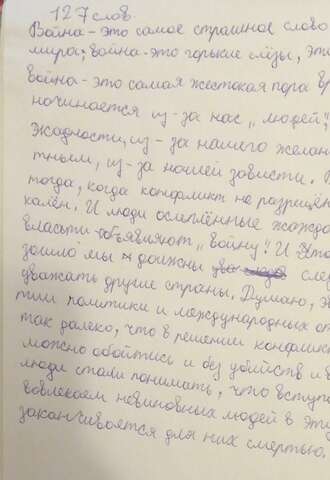 127 слов.
Война - это самое страшное слово
мира; война - это горькие слёзы, эт
война - это самая жестокая пора вр
начинается из-за нас „людей",
жадности, из-за нашего желан
тными, из-за нашей зависти.
тогда, когда конфликт не разрешён
кален. И люди ослеплённые жаждо
власти объявляют „войну". И чтоб
зошло мы должны след
уважать другие страны. Думаю, э
тии политики и международных от
так далеко, что в решении конфлик
можно обойтись и без убийств и в
люди стали понимать, что вступа
вовлекаем невиновных людей в эту
заканчивается для них смертью.